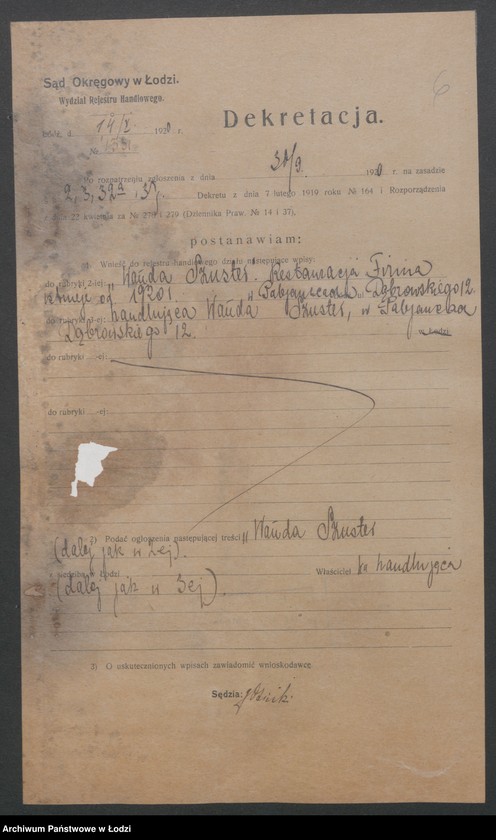 6
Sąd Okręgowy w Łodzi.
Wydział Rejestru Handlowego.
Łódź, d. 14/X 1920 r.
№
Dekretacja.
Po rozpatrzeniu zgłoszenia z dnia 30/9. 1920 r. na zasadzie
2, 3, 32a, 37. Dekretu z dnia 7 lutego 1919 roku № 164 i Rozporządzenia
z dnia 22 kwietnia za № 278 i 279 (Dziennika Praw. № 14 i 37),
postanawiam:
1) Wnieść do rejestru handlowego działu następujące wpisy:
do rubryki 2-iej: "Wanda Szuster. Restauracja Firma
istnieje od 1920 r. w Pabjanicach ul. Dąbrowskiego 12.
do rubryki 3-ej: handlująca Wanda Szuster, w Pabjanicach
Dąbrowskiego 12. w Łodzi
do rubryki ...-ej:
do rubryki ...-ej:
2) Podać ogłoszenia następującej treści: "Wanda Szuster
(dalej jak w 2ej).
siedziba w Łodzi Właściciel ka handlująca
(dalej jak w 3ej).
3) O uskutecznionych wpisach zawiadomić wnioskodawcę
Sędzia:
Archiwum Państwowe w Łodzi